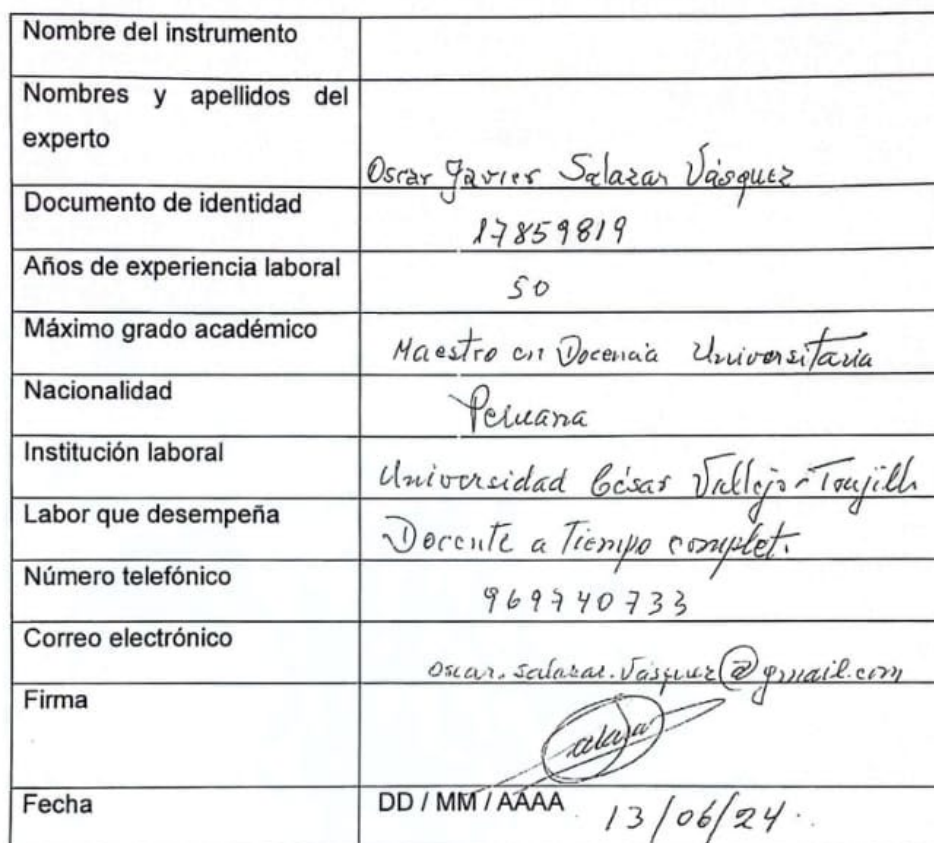 Nombre del instrumento
Nombres y apellidos del
experto
Oscar Javier Salazar Vásquez
Documento de identidad
17859819
Años de experiencia laboral
50
Máximo grado académico
Maestro en Docencia Universitaria
Nacionalidad
Peruana
Institución laboral
Universidad César Vallejo - Trujillo
Labor que desempeña
Docente a Tiempo complet.
Número telefónico
969740733
Correo electrónico
oscar.salazar.vasquez@gmail.com
Firma
Fecha
DD / MM / AAAA 13/06/24.